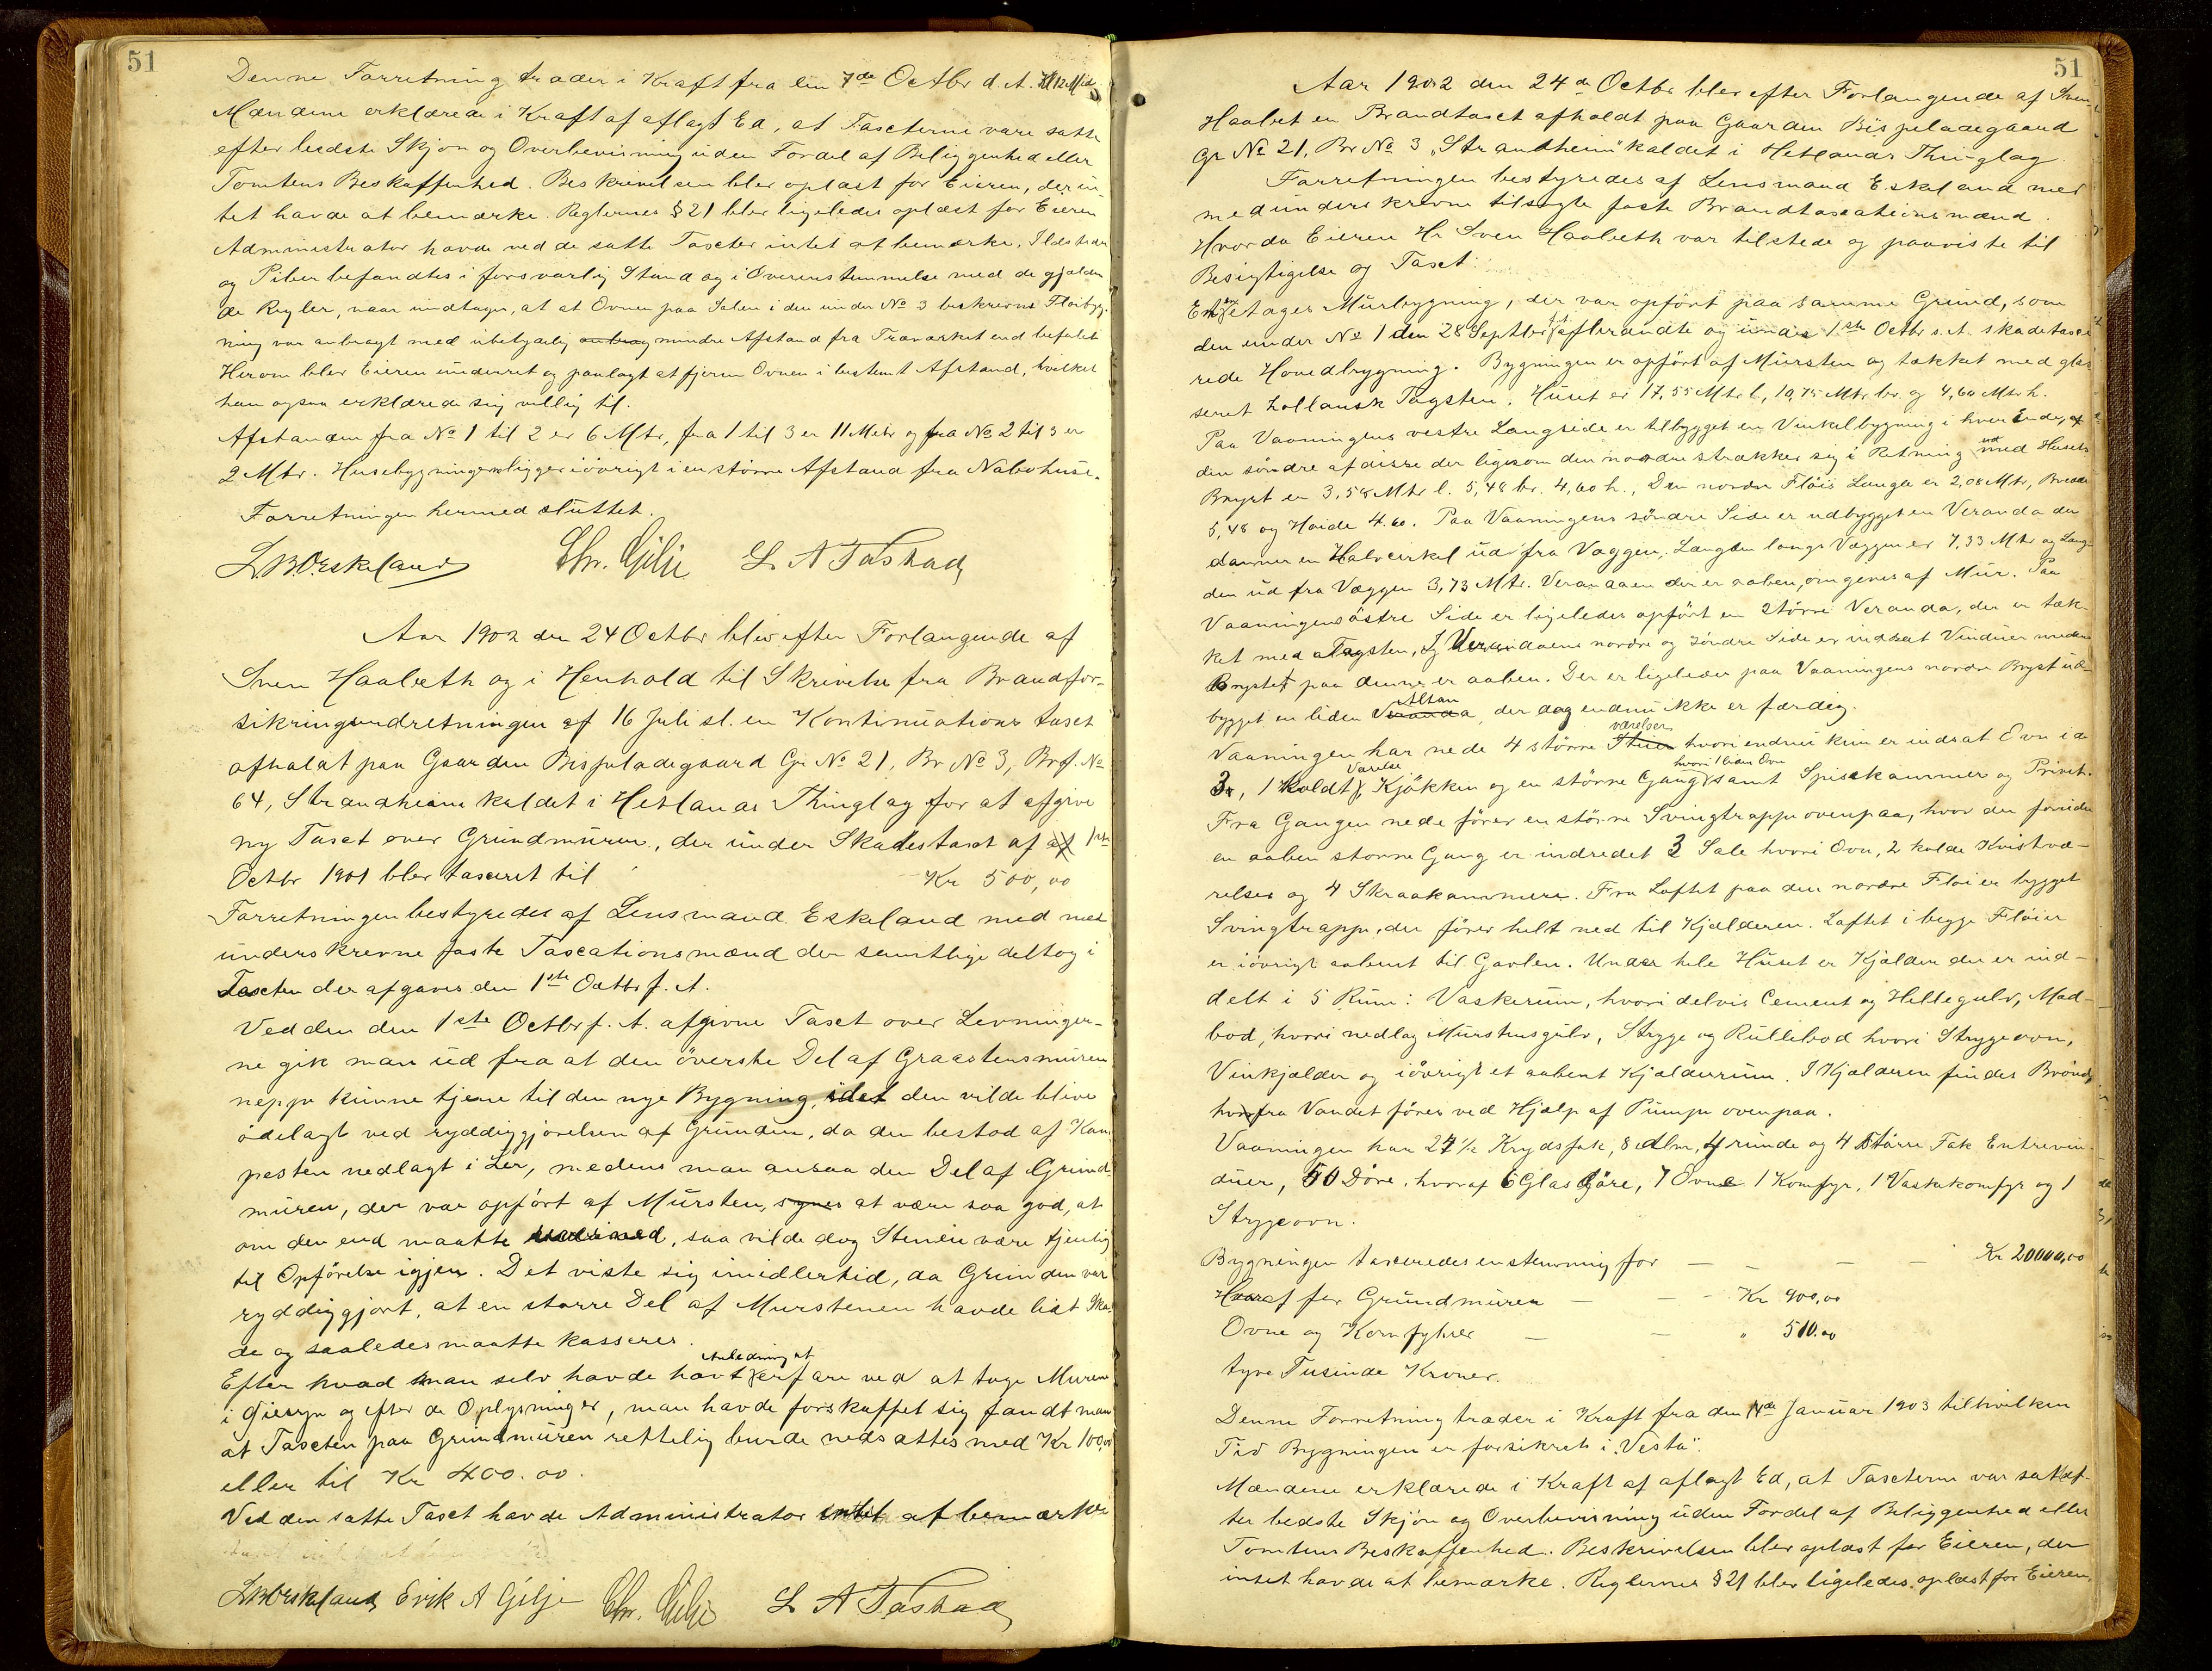 51
Denne Forretning træder i Kraft fra den 7de Octbr d. A. Kl 12 Mid.
Mændene erklærede i Kraft af aflagt Ed, at Taxterne vare satte
efter bedste Skjøn og Overbevisning uden Fordel af Beliggenhed eller
Tomtens Beskaffenhed. Beskrivelsen blev oplæst for Eieren, der in
tet havde at bemærke. Reglernes § 21 blev ligeledes oplæst for Eieren
Administrator havde ved de satte Taxter intet at bemærke. Ildsteder
og Piber befandtes i forsvarlig Stand og i Overensstemmelse med de gjælden
de Regler, naar undtages, at at Ovnen paa Salen i den under No 3 beskrevne Fløibyg-
ning var anbragt med ubetydelig mindre Afstand fra Træværket end befalet
Herom blev Eieren underret og paalagt at fjerne Ovnen i bestemt Afstand, hvilket
han ogsaa erklærede sig villig til.
Afstanden fra No 1 til 2 er 6 Mtr, fra 1 til 3 er 11 Metr og fra No 2 til 3 er
2 Mtr. Husebygningerne ligger iövrigt i en större Afstand fra Nabohuse.
Forretningen hermed sluttet.
Eskeland Chr. Gilje L A Tastad
Aar 1902 den 24 Octbr blev efter Forlangende af
Sven Haabeth og i Henhold til Skrivelse fra Brandfor-
sikringsindretningen af 16 Juli sl. en Kontinuations taxt
afholdt paa Gaarden Bispeladegaard Gr No 21, Br No 3, Brf. No
64, Strandheim kaldet i Hetlands Thinglag for at afgive
ny Taxt over Grundmuren, der under Skadestaxt af af 1ste
Octbr 1901 blev taxeret til Kr 500,00
Forretningen bestyredes af Lensmand Eskeland med med
underskrevne faste Taxationsmænd der samtlige deltog i
Taxten der afgaves den 1ste Octbr f. A.
Ved den den 1ste Octbr f. A. afgivne Taxt over Levninger-
ne gik man ud fra at den överste Del af Graastensmuren
neppe kunne tjene til den nye Bygning, idet den vilde blive
ödelagt ved ryddiggjörelsen af Grunden, da den bestod af Kam
pesten nedlagt i Ler, medens man ansaa den Del af Grund-
muren, der var opfört af Mursten, synes at være saa god, at
om den end maatte, saa vilde dog Stenene være tjenlig
til Opförelse igjen. Det viste sig imidlertid, da Grunden var
ryddiggjort, at en större Del af Murstenen havde lidt Ska-
de og saaledes maatte kasseres.
Anledning at
Efter hvad man selv havde havt erfare ved at tage Muren
i Øiesyn og efter de Oplysninger, man havde forskaffet sig fandt man
at Taxten paa Grundmuren rettelig burde nedsættes med Kr 100,00
eller til Kr 400.00.
Ved den satte Taxt havde Administrator intet at bemærke
Eskeland Erik A Gilje Chr. Gilje L A Tastad
51
Aar 1902 den 24de Octbr blev efter Forlangende af Sven
Haabet en Brandtaxt afholdt paa Gaarden Bispeladegaard
Gr No 21, Br No 3 „Strandheim" kaldet i Hetlands Thinglag.
Forretningen bestyredes af Lensmand Eskeland med
medunderskrevne tilsagte faste Brandtaxationsmænd.
Hvorda Eieren Hr Sven Haabeth var tilstede og paaviste til
Besigtigelse og Taxt:
En Etages Murbygning, der var opfört paa samme Grund, som
den under No 1 den 28 Septbr afbrændte og under 1ste Octbr s. A. skadetaxe
rede Hovedbygning. Bygningen er opfört af Mursten og tækket med gla-
seret hollansk Tagsten. Huset er 17,55 Mtr l, 10,75 Mtr br. og 4,60 Mtr h.
Paa Vaaningens vestre Langside er tilbygget en Vinkelbygning i hver Ende, af
den söndre af disse der ligesom den nordre strækker sig i Retning ud med Husets
Bryst er 3,58 Mtr l. 5,48 br. 4,60 h., Den nordre Flöis Længde er 2,08 Mtr, Bredde
5,48 og Høide 4.60. Paa Vaaningens söndre Side er udbygget en Veranda der
danner en Halvcirkel ud fra Væggen. Længden langs Væggen er 7,33 Mtr og Læng-
den ud fra Væggen 3,73 Mtr. Verandaen der er aaben, omgives af Mur. Paa
Vaaningens östre Side er ligeledes opfört en större Veranda, der er tæk-
ket med Tagsten, I Verandaens nordre og söndre Side er indsat Vinduer medens
Brystet paa denne er aaben. Der er ligeledes paa Vaaningens nordre Bryst ud-
Altan
bygget en liden Veranda, der dog endnu ikke er færdig.
værelser
Vaaningen har nede 4 större Stuer hvori endnu kun er indsat Ovn i de
Værelse hvori 1 liden Ovn
3, 1 koldt, Kjökken og en större Gang samt Spisekammer og Privet.
Fra Gangen nede förer en större Svingtrappe ovenpaa, hvor der foruden
en aaben större Gang er indredet 3 Sale hvori Ovn, 2 kolde Kvistvæ-
relser og 4 Skraakammere. Fra Loftet paa den nordre Flöi er bygget
Svingtrappe, der förer helt ned til Kjælderen. Loftet i begge Flöier
er iövrigt aabent til Gavlen. Under hele Huset er Kjælder der er ind-
delt i 5 Rum: Vaskerum, hvori delvis Cement og Hellegulv, Mad-
bod, hvori nedlag Murstensgulv, Stryge og Rullebod hvori Strygeovn,
Vinkjælder og iövrigt et aabent Kjælderrum. I Kjælderen findes Brönd
hvorfra Vandet föres ved Hjælp af Pumpe ovenpaa.
Vaaningen har 27 ½ Krydsfak, 8 Alm, 4 runde og 4 Större Fak Entrevin-
duer, 50 Döre, hvoraf 6 Glas Döre, 7 Ovne 1 Komfyr, 1 Vaskekomfyr og 1
Strygeovn.
Bygningen taxeredes enstemmig for — — — — Kr 20000,00
Hvoraf for Grundmuren — — Kr 900,00
Ovne og Komfyhrer — — „ 510.00
tyve Tusinde Kroner.
Denne Forretning træder i Kraft fra den 14de Januar 1903 til hvilken
Tid Bygningen er forsikret i „Vesta".
Mændene erklærede i Kraft af aflagt Ed, at Taxterne var sat ef-
ter bedste Skjön og Overbevisning uden Fordel af Beliggenhed eller
Tomtens Beskaffenhed. Beskrivelsen blev oplæst for Eieren, der
intet havde at bemærke. Reglernes § 21 blev ligeledes oplæst for Eieren,